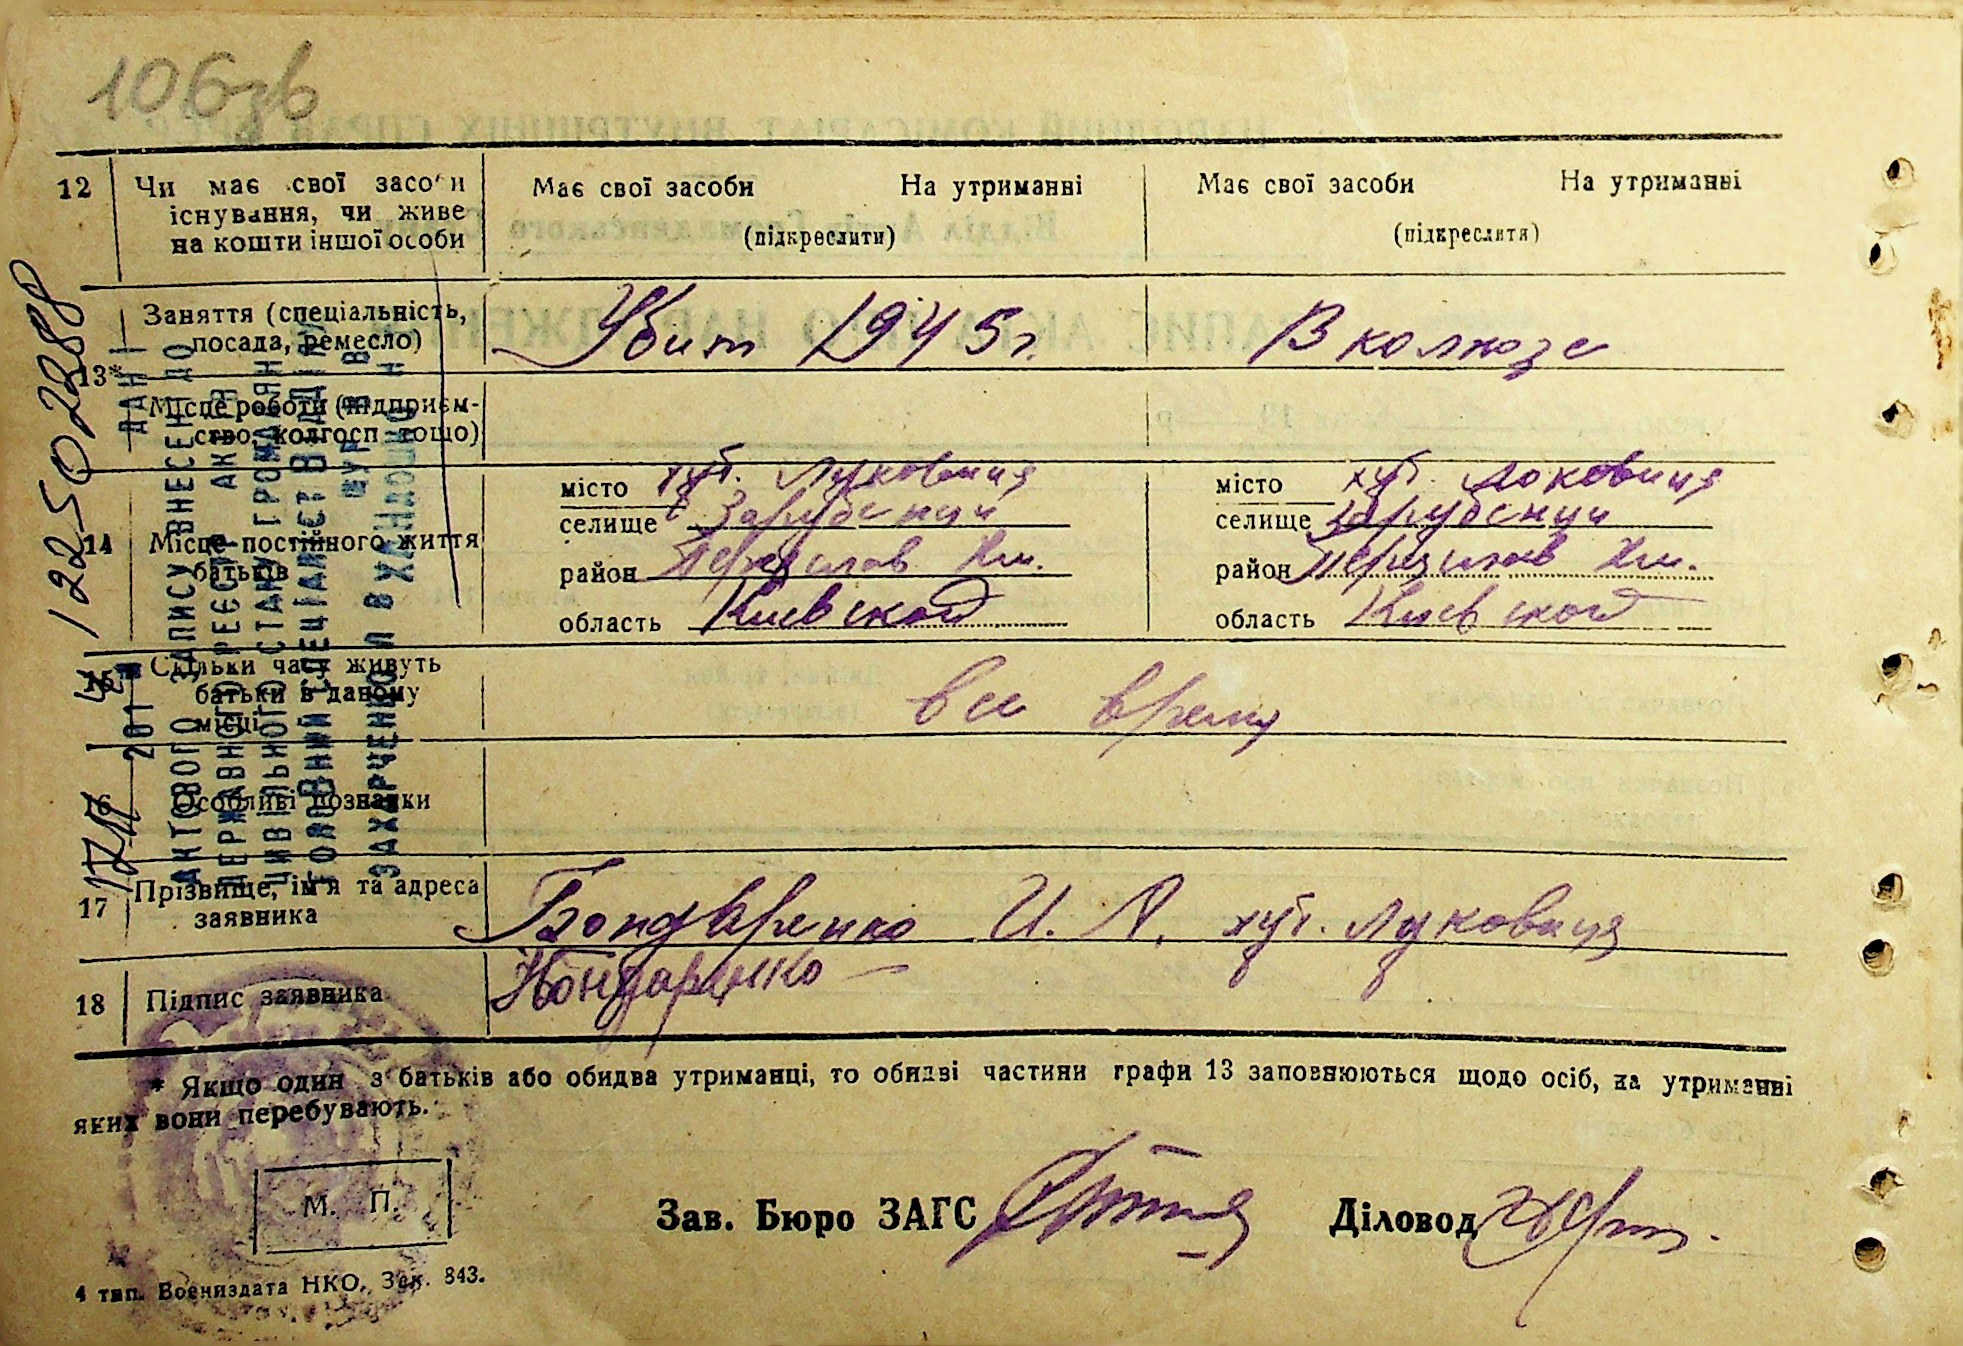 106зв
12 Чи має свої засоби Має свої засоби На утриманні Має свої засоби На утриманні
існування, чи живе
на кошти іншої особи (підкреслити) (підкреслитя)
Заняття (спеціальність, Убит 1945 г. В колхозе
посада, ремесло)
13*
Місце роботи (підприєм-
ство, колгосп тощо)
місто хут. Луковиця місто хут. Локовиця
селище Зарубенци селище Зарубенци
14 Місце постійного життя
батьків район Переяслав Хм. район Переяслав Хм.
область Киевской область Киевской
15 Скільки часу живуть
батьки в даному все время
місці
16 Особливі познаки
17 Прізвище, ім'я та адреса Бондаренко И. А. хут. Луковиця
заявника
18 Підпис заявника Бондаренко
* Якщо один з батьків або обидва утриманці, то обидві частини графи 13 заповнюються щодо осіб, на утриманні
яких вони перебувають.
М. П. Зав. Бюро ЗАГС Діловод
4 тип. Воениздата НКО. Зак. 843.
ДАНІ 122502388
АКТОВОГО ЗАПИСУ ВНЕСЕНІ ДО
ДЕРЖАВНОГО РЕЄСТРУ АКТІВ
ЦИВІЛЬНОГО СТАНУ ГРОМАДЯН
ГОЛОВНИЙ СПЕЦІАЛІСТ ВІДДІЛУ
201